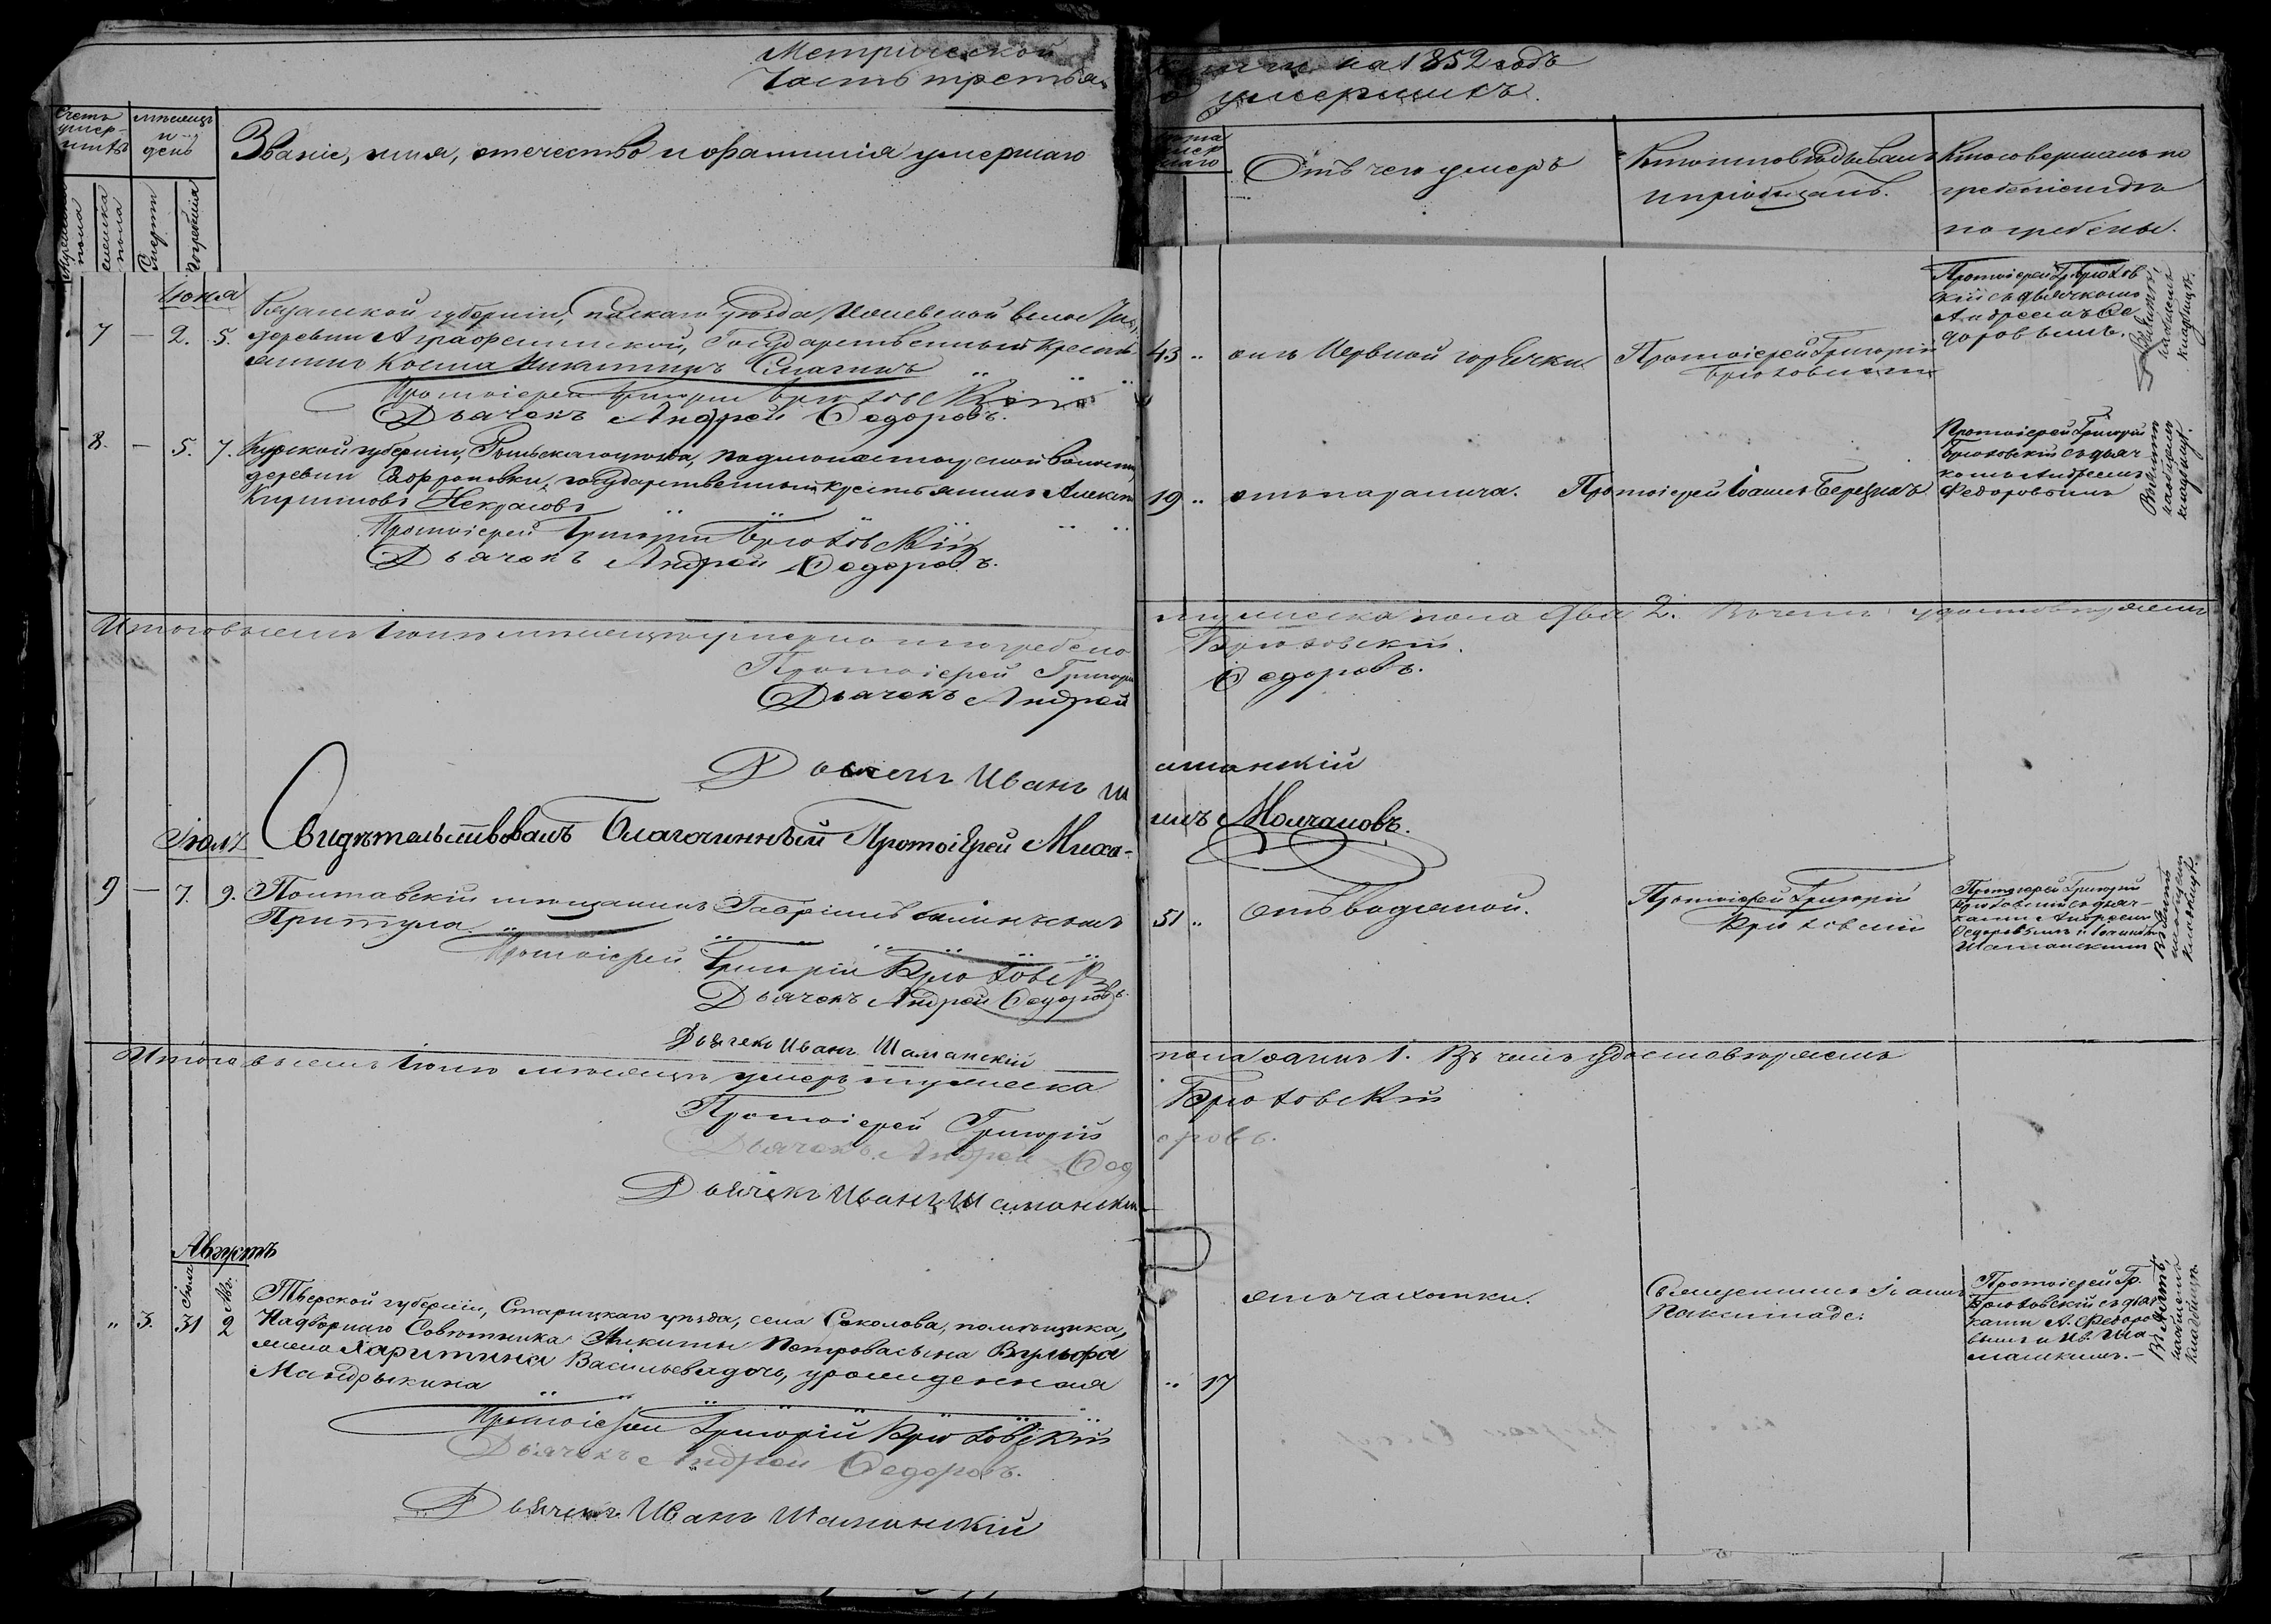 Метрической
Часть третья,
книги на 1852 годъ
о умершихъ.
Счетъ умер-шихъ
мѣсяцъ и день
Званіе, имя, отечество и фамилія умершаго
Мужеска пола
женска пола
Смерти
Погребенія
Лѣта умершаго
Отъ чего умеръ
Кто исповѣдывалъ
и пріобщалъ.
Кто совершалъ по
гребеніе и гдѣ
погребены.
Іюня
7 — 2. 5.
губерніи, уѣзда,
деревни Аграфениской, Государственный кресть
янинъ Косма Никитинъ
Протоіерей Григорій Брюховскій
Дьячекъ Андрей Федоровъ.
43 ..
отъ Нервной горячки
Протоіерей Григорій
Брюховскій
Протоіерей Г. Брюхов
скій съ дьячкомъ
Андреемъ Фе
доровымъ.
8. — 5. 7.
Курской губерніи, Рыльскаго уѣзда, волости,
деревни государственный крестьянинъ Алексѣй
Кирилловъ Некрасовъ
Протоіерей Григорій Брюховскій
Дьячекъ Андрей Федоровъ.
19 ..
отъ паралича.
Протоіерей Іоаннъ
Протоіерей Григорій
Брюховскій съ дьяч
комъ Андреемъ
Федоровымъ
Итого въ семъ Іюнѣ мѣсяцѣ умерло и погребено
мужеска пола два 2. Въ чемъ удостовѣряемъ
Протоіерей Григорій
Брюховскій.
Дьячекъ Андрей
Федоровъ.
Дьячекъ Иванъ Ш
аманскій
Свидѣтельствовалъ Благочинный Протоіерей Миха-
илъ Молчановъ.
Іюль
9 — 7. 9.
Полтавскій мѣщанинъ Гавріилъ
Притула
Протоіерей Григорій Брюховскій
Дьячекъ Андрей Федоровъ.
Дьячекъ Иванъ Шаманскій
51 ..
Отъ водяной.
Протоіерей Григорій
Брюховскій
Протоіерей Григорій
Брюховскій съ дьяч-
ками Андреемъ
Федоровымъ и Іоанномъ
Шаманскимъ
Итого въ семъ Іюлѣ мѣсяцѣ умеръ мужеска
пола одинъ 1. Въ чемъ удостовѣряемъ
Протоіерей Григорій
Брюховскій
Дьячекъ Андрей Фед
оровъ.
Дьячекъ Иванъ Шаманскій
Августъ
Іюля
Авг.
„ 3. 31 2
Тверской губерніи, Старицкаго уѣзда, села Соколова, помѣщика,
Надворнаго Совѣтника Никиты Петрова сына Вульфа
жена Харитина Васильева дочь, урожденная
Мандрыкина
Протоіерей Григорій Брюховскій
Дьячекъ Андрей Федоровъ.
Дьячекъ Иванъ Шаманскій
.. 17
отъ чахотки.
Священникъ Іоаннъ
Протоіерей Гр.
Брюховскій съ дьяч
ками А. Федоро
вымъ и Ив. Ша
манскимъ. —